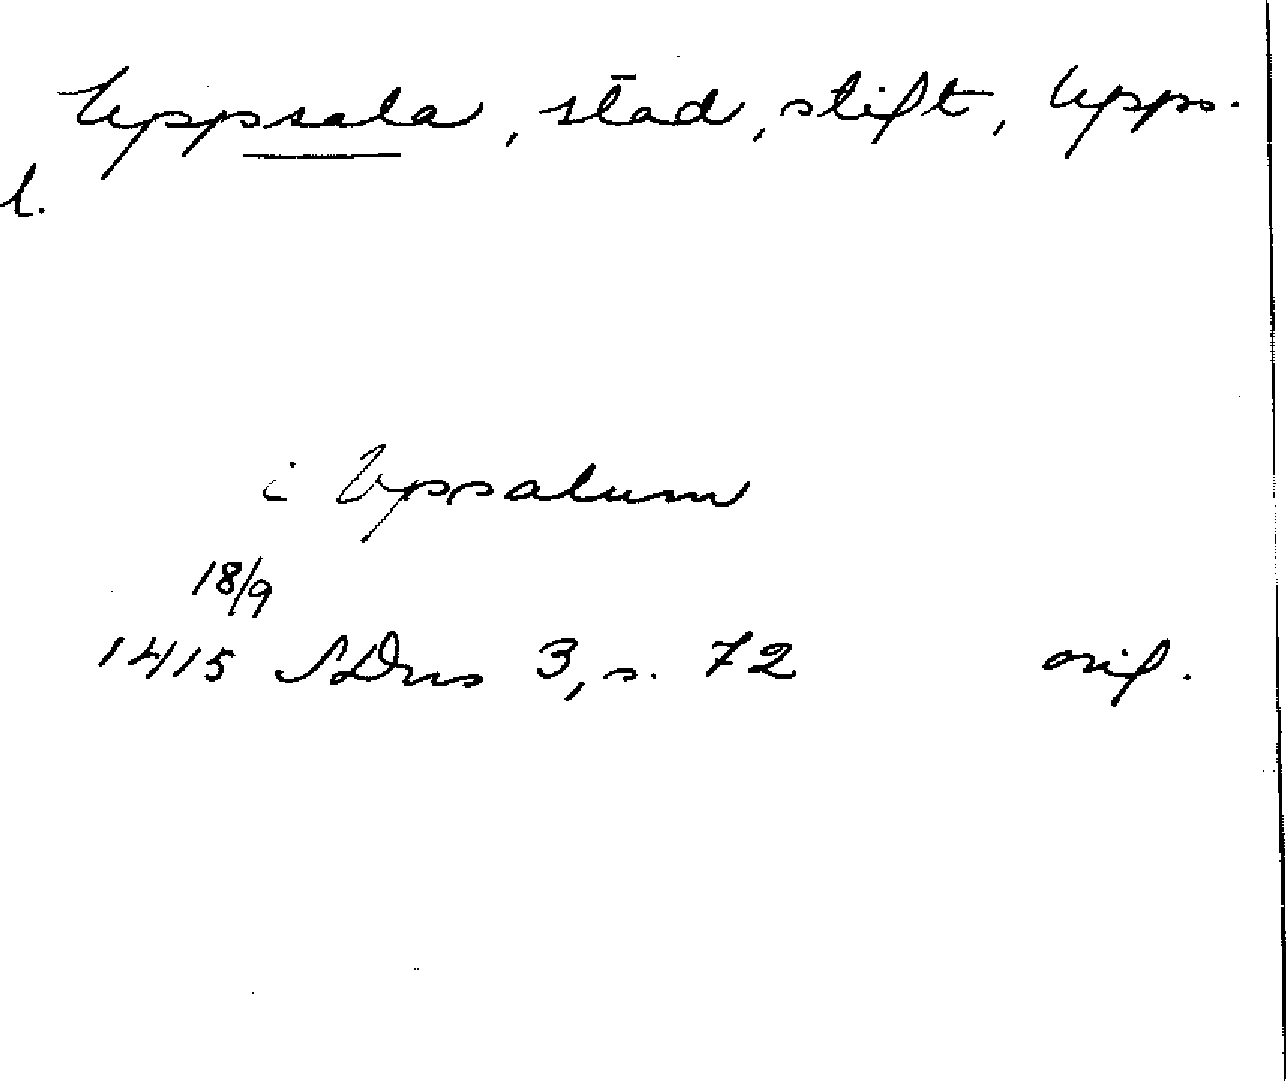 Uppsala, stad, stift, Upps.
l.
i Vpsalum
18/9
1415 SDns 3, s. 72 orig.